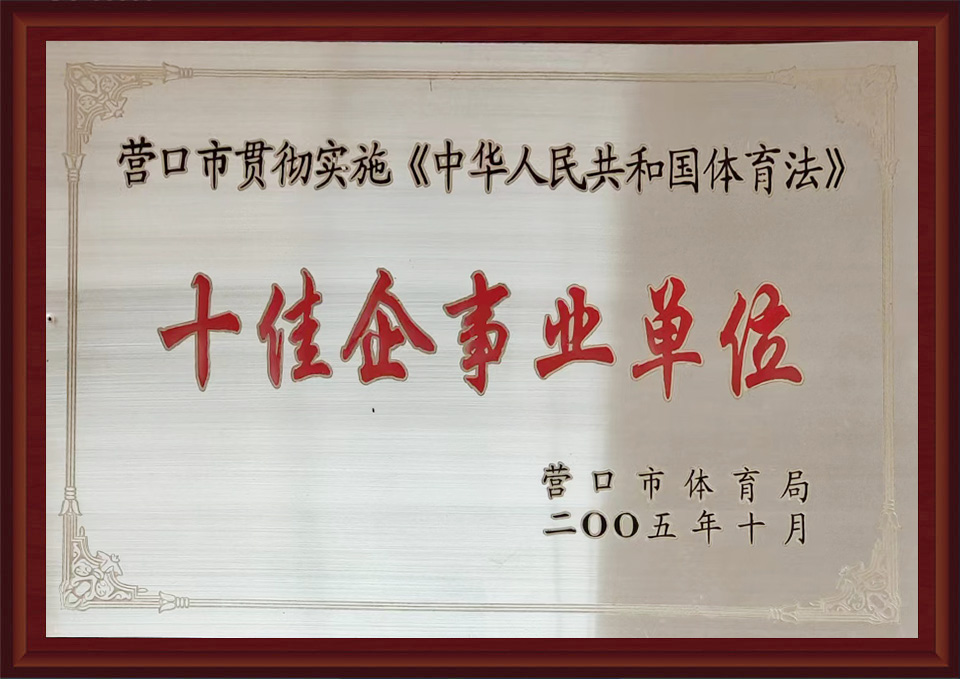 营口市贯彻实施《中华人民共和国体育法》
十佳企事业单位
营口市体育局
二〇〇五年十月